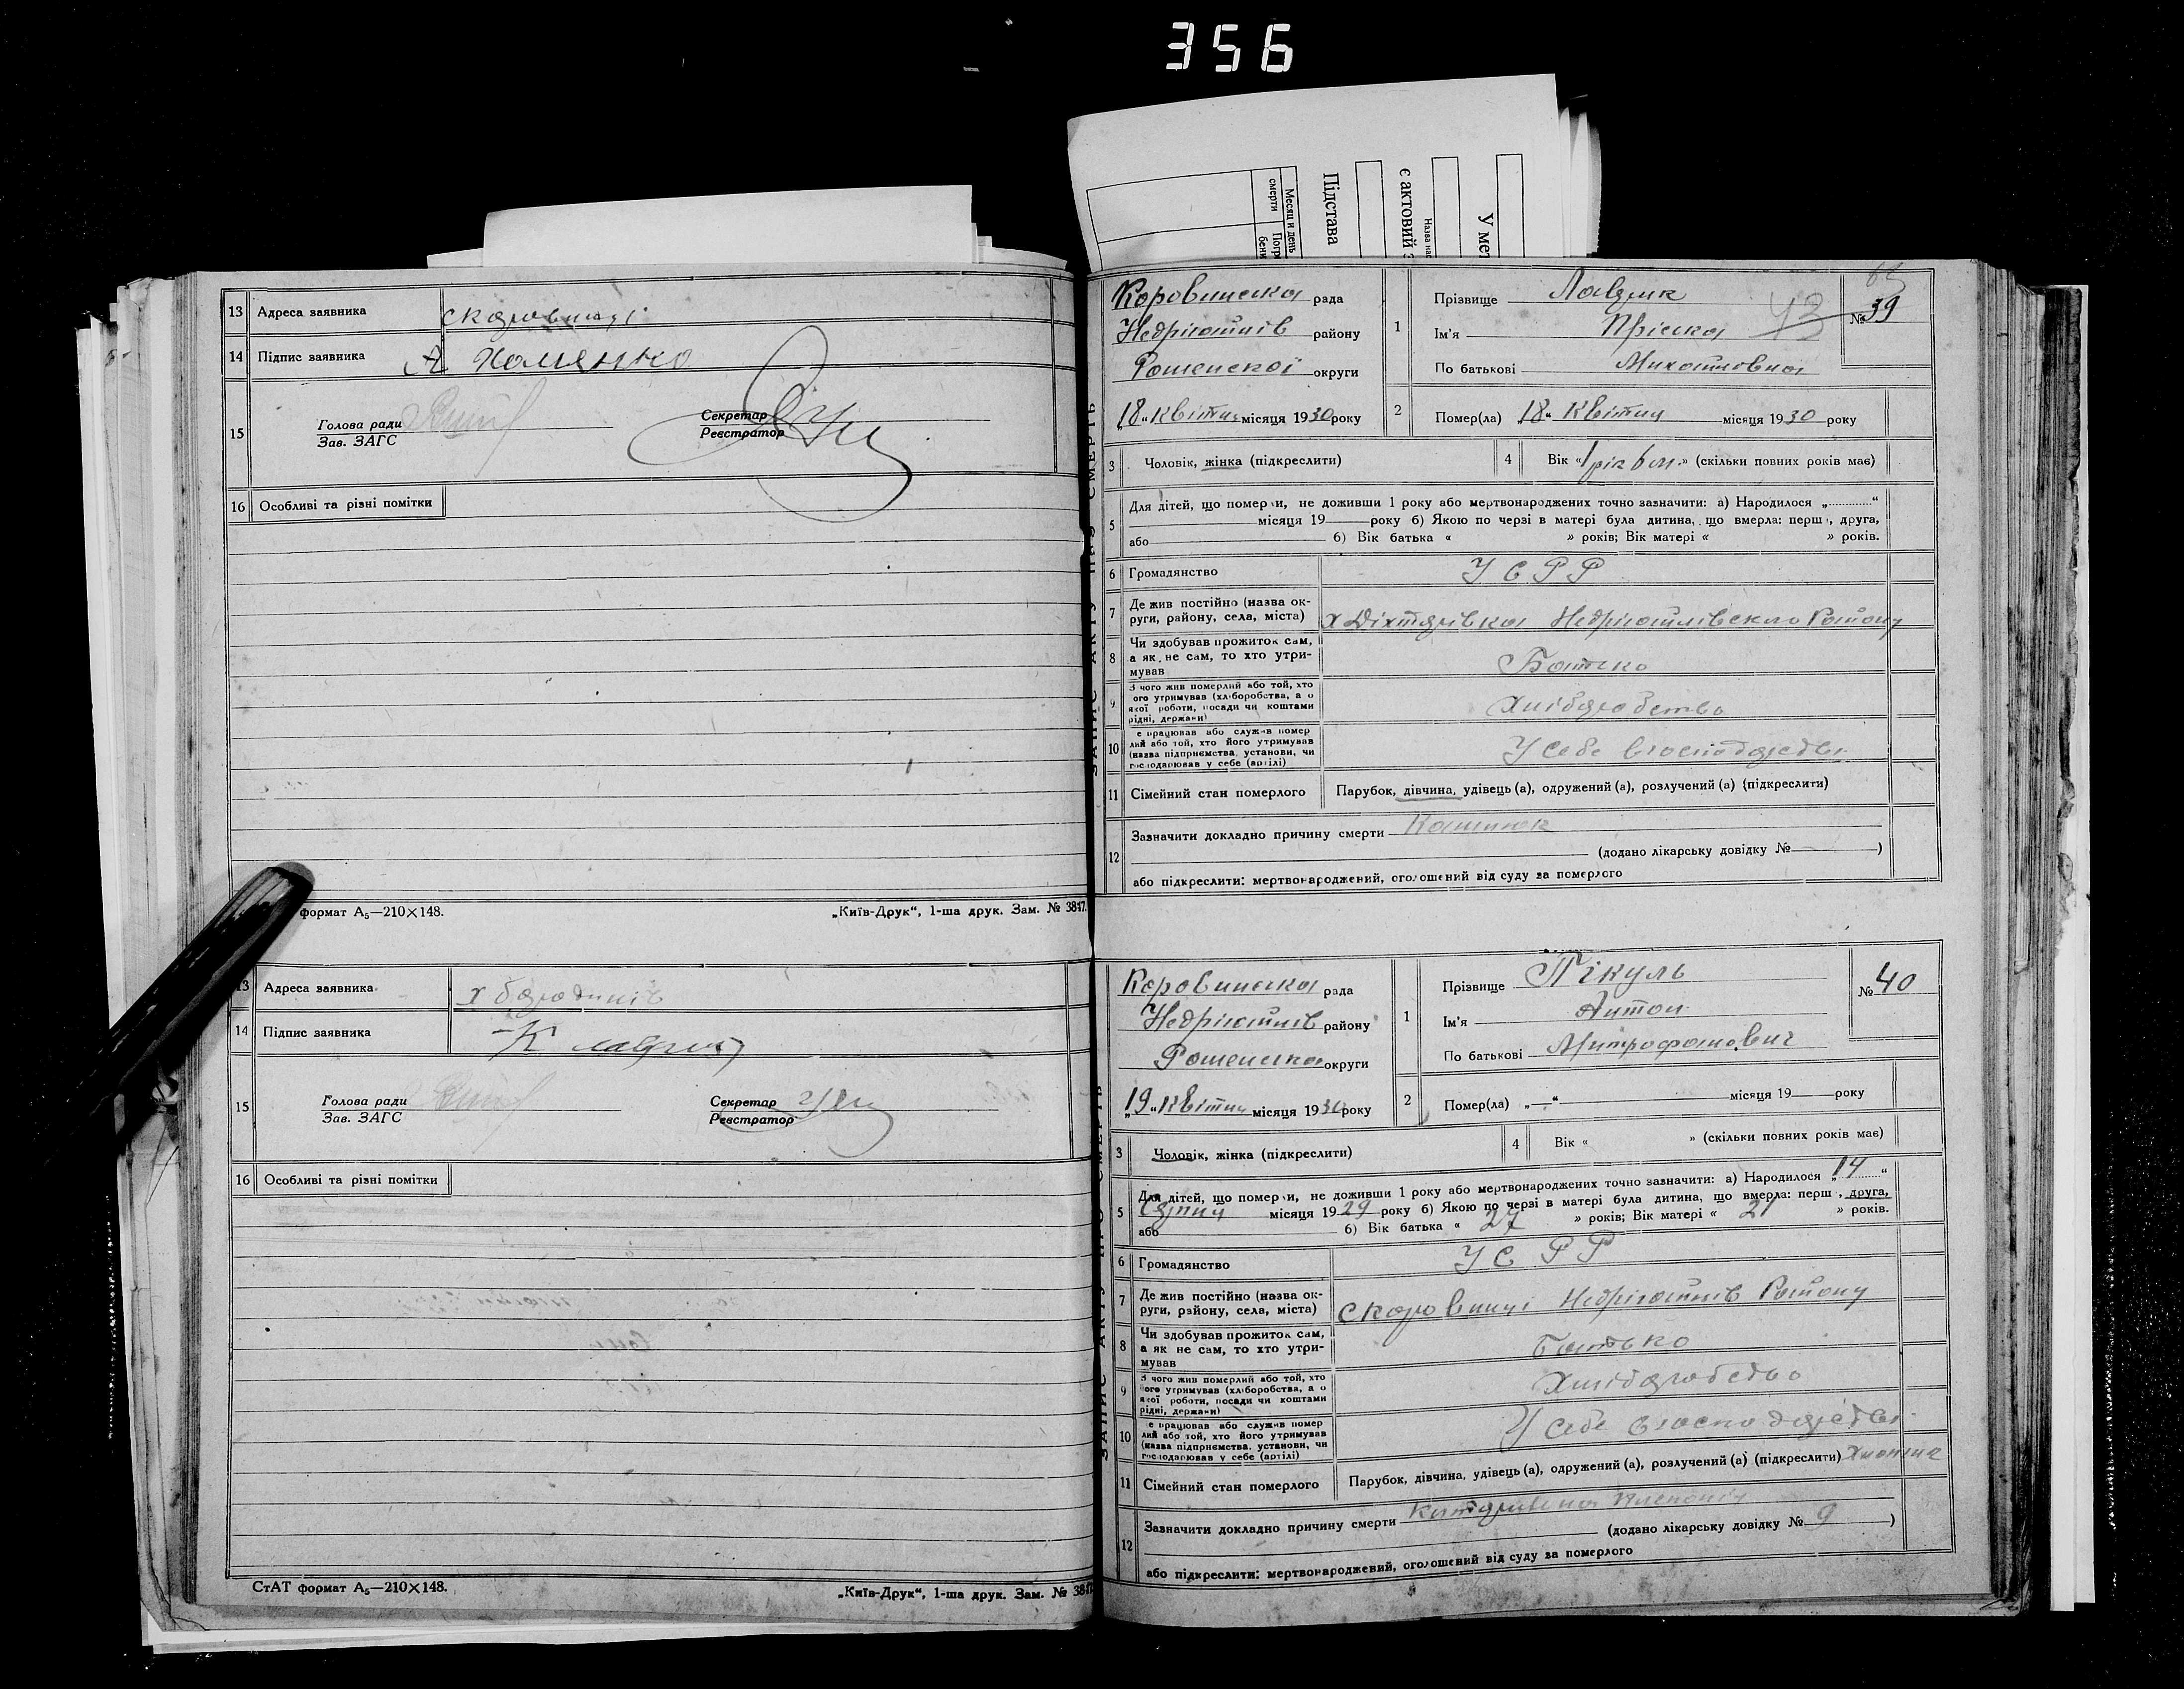 356
У мет
Назва нас
є актовий з
Підстава
Месяц и день
смерти
Погр
бени
13 Адреса заявника с Коровинці
14 Підпис заявника А Хоменко
15 Голова ради
Зав. ЗАГС
Секретар
Реєстратор
16 Особливі та різні помітки
формат А5—210×148.
„Київ-Друк“, 1-ша друк. Зам. № 3817.
13 Адреса заявника х Бородинів
14 Підпис заявника К
15 Голова ради
Зав. ЗАГС
Секретар
Реєстратор
16 Особливі та різні помітки
СтАТ формат А5—210×148.
„Київ-Друк“, 1-ша друк. Зам. № 3817
ЗАПИС АКТУ ПРО СМЕРТЬ
Коровинська рада
Недригайлів району
Роменської округи
„18“ Квітня місяця 1930 року
1 Прізвище Лаврик
Ім'я Пріська
По батькові Михайловна
43
№ 39
2 Помер(ла) „18“ Квітня місяця 1930 року
3 Чоловік, жінка (підкреслити)
4 Вік «1 рік 6 м.» (скільки повних років має)
5 Для дітей, що померли, не доживши 1 року або мертвонароджених точно зазначити: а) Народилося „ “
місяця 19 року б) Якою по черзі в матері була дитина, що вмерла: перша, друга,
або 6) Вік батька « » років; Вік матері « » років.
6 Громадянство УСРР
7 Де жив постійно (назва округи, району, села, міста) х Діхтярівка Недригайлівського Району
8 Чи здобував прожиток сам, а як не сам, то хто утримував Батько
9 З чого жив померлий або той, хто його утримував (хліборобства, а о якої роботи, посади чи коштами рідні, держави) Хліборобство
10 е працював або служив помер лий або той, хто його утримував (назва підприємства, установи, чи господарював у себе (артілі) У себе в господарстві
11 Сімейний стан померлого Парубок, дівчина, удівець (а), одружений (а), розлучений (а) (підкреслити)
12 Зазначити докладно причину смерти Кашлюк
(додано лікарську довідку № )
або підкреслити: мертвонароджений, оголошений від суду за померлого
ЗАПИС АКТУ ПРО СМЕРТЬ
Коровинська рада
Недригайлів району
Роменська округи
„19“ Квітня місяця 1930 року
1 Прізвище Пікуль
Ім'я Антон
По батькові Митрофанович
№ 40
2 Помер(ла) „—“ місяця 19 року
3 Чоловік, жінка (підкреслити)
4 Вік « » (скільки повних років має)
5 Для дітей, що померли, не доживши 1 року або мертвонароджених точно зазначити: а) Народилося „14“
Серпня місяця 1929 року б) Якою по черзі в матері була дитина, що вмерла: перша, друга,
або 6) Вік батька « 27 » років; Вік матері « 21 » років.
6 Громадянство УСРР
7 Де жив постійно (назва округи, району, села, міста) с Коровинці Недригайлів Району
8 Чи здобував прожиток сам, а як не сам, то хто утримував Батько
9 З чого жив померлий або той, хто його утримував (хліборобства, а о якої роботи, посади чи коштами рідні, держави) Хліборобство
10 е працював або служив помер лий або той, хто його утримував (назва підприємства, установи, чи господарював у себе (артілі) У себе в господарстві
11 Сімейний стан померлого Парубок, дівчина, удівець (а), одружений (а), розлучений (а) (підкреслити) Хлопчик
12 Зазначити докладно причину смерти Катаральна
(додано лікарську довідку № 9 )
або підкреслити: мертвонароджений, оголошений від суду за померлого